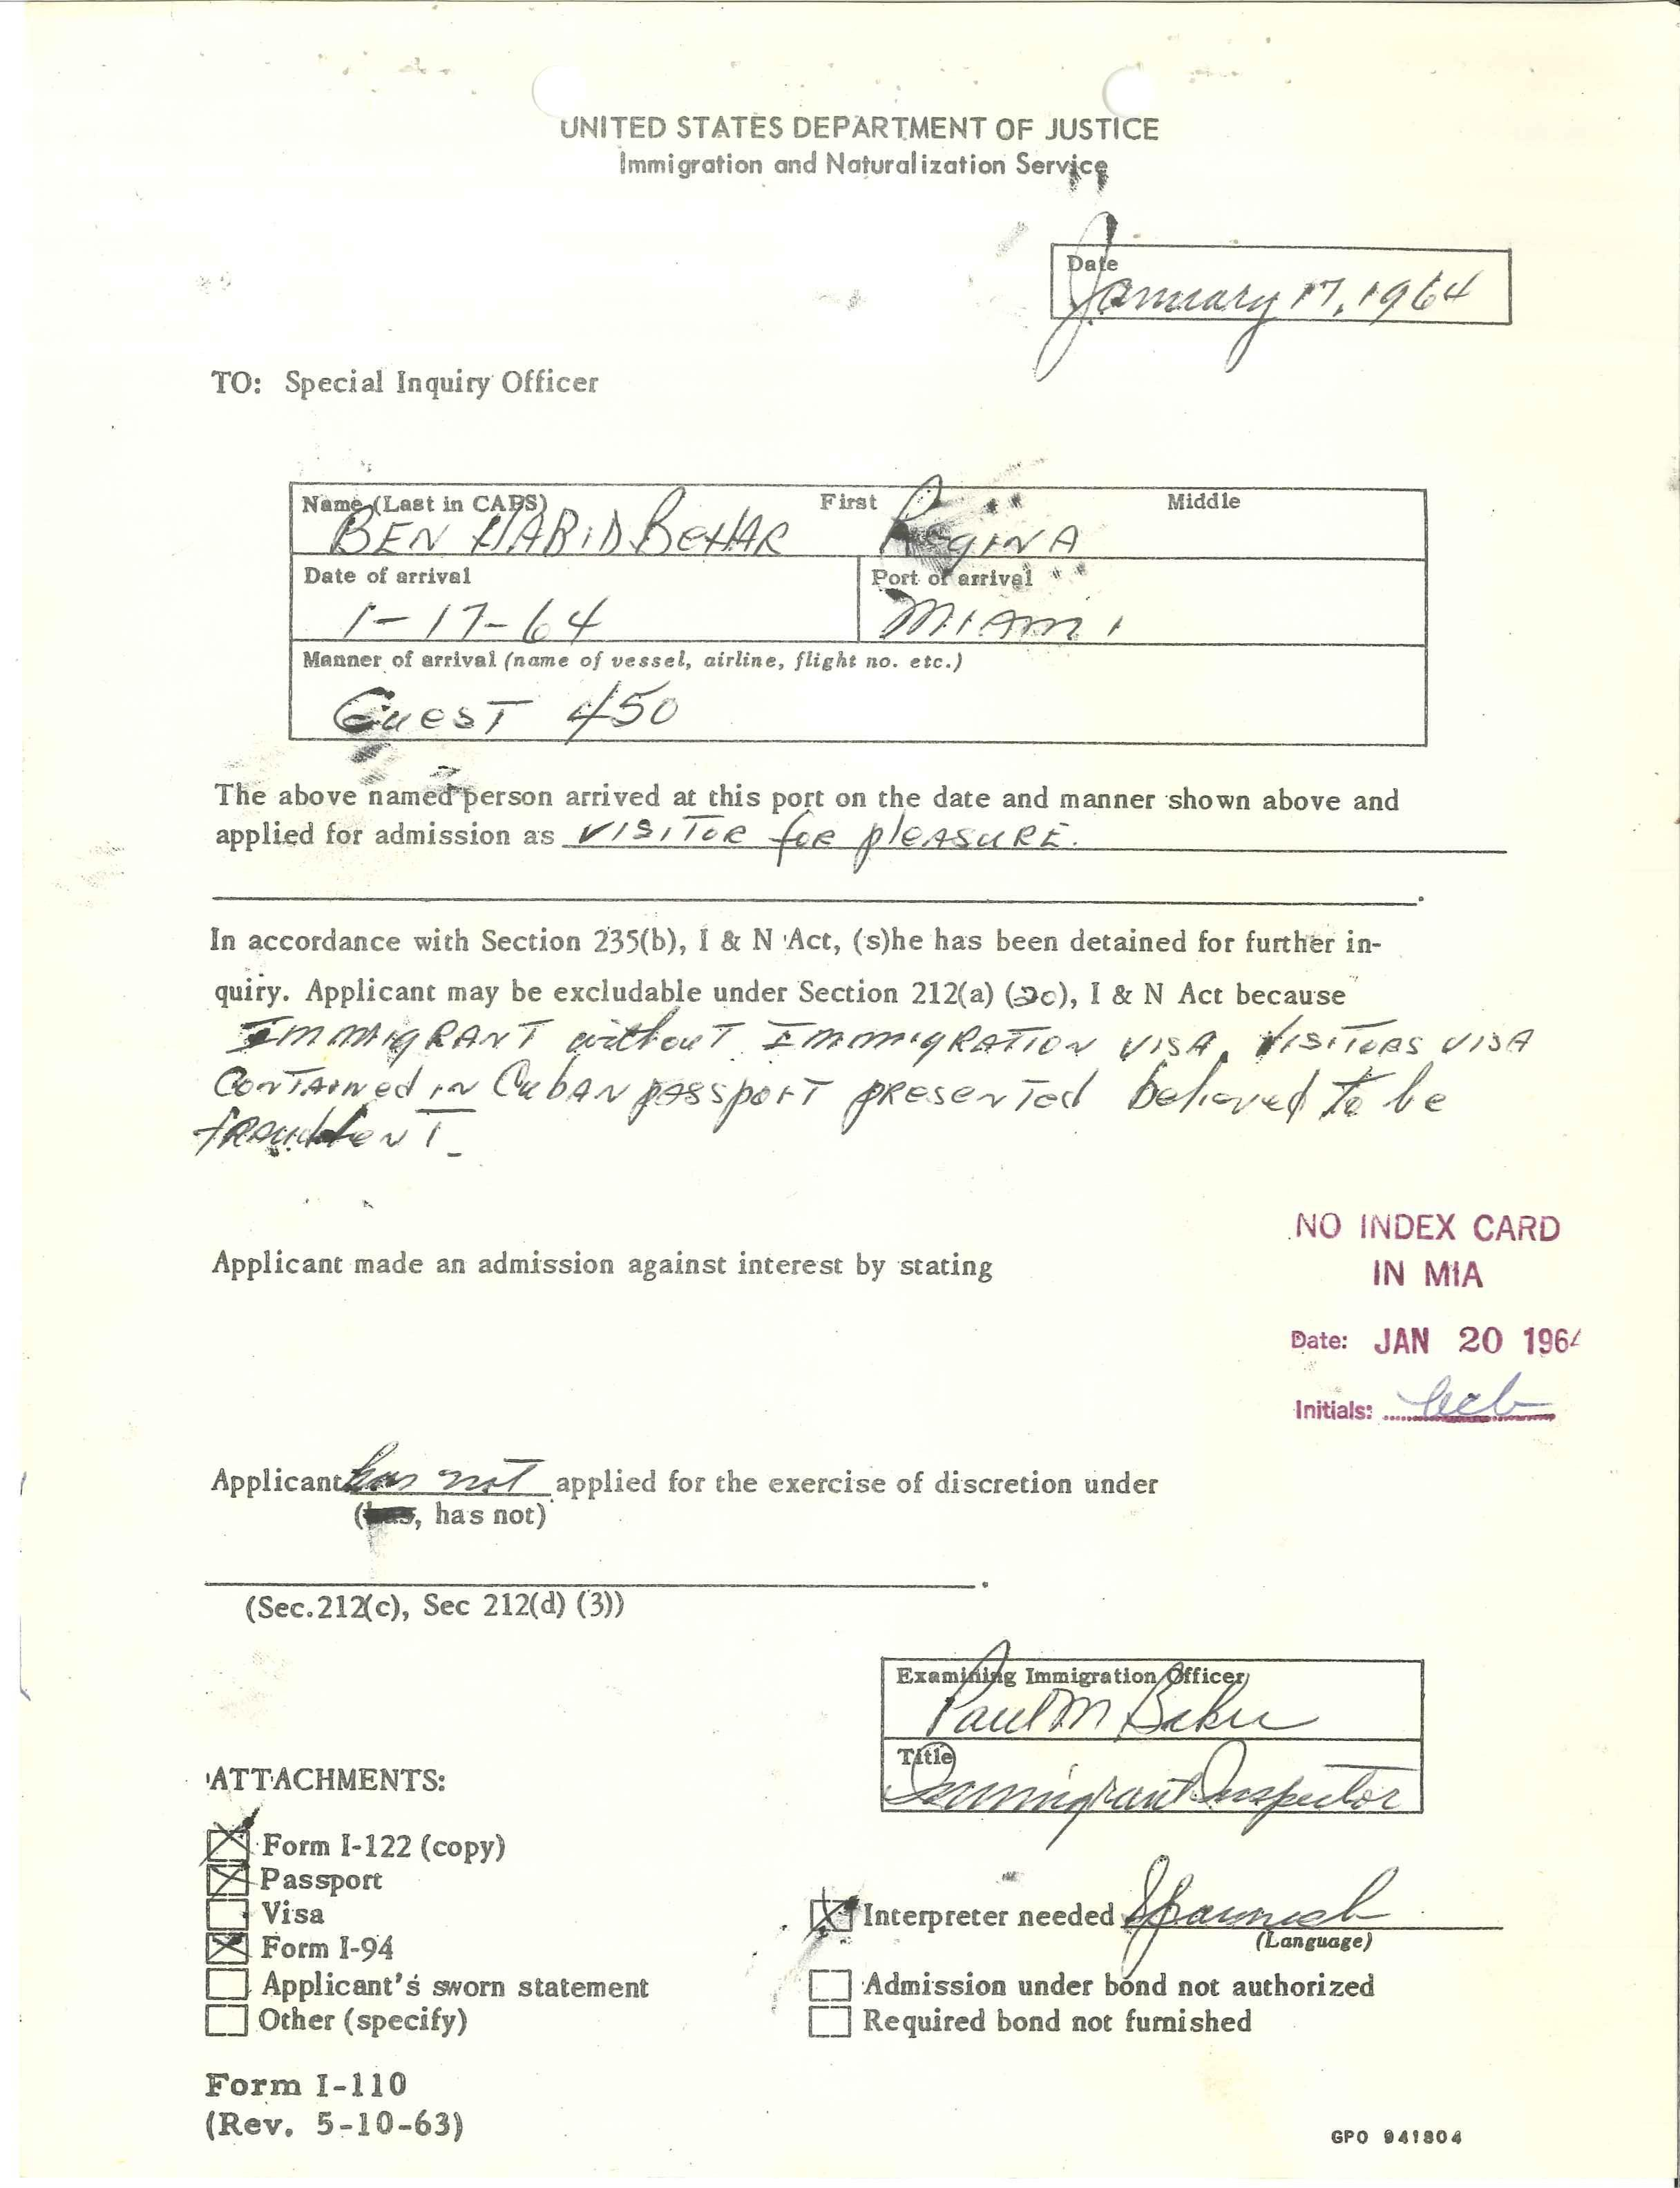 UNITED STATES DEPARTMENT OF JUSTICE
Immigration and Naturalization Service
Date
January 17, 1964
TO: Special Inquiry Officer
Name (Last in CAPS) First Middle
BEN HABID BEHAR REGINA
Date of arrival Port of arrival
1-17-64 MIAMI
Manner of arrival (name of vessel, airline, flight no. etc.)
GuesT 450
The above named person arrived at this port on the date and manner shown above and
applied for admission as VISITOR for pleASURE.
In accordance with Section 235(b), I & N Act, (s)he has been detained for further in-
quiry. Applicant may be excludable under Section 212(a) (20), I & N Act because
IMMIGRANT without IMMIGRATION VISA. VISITORS VISA
CONTAINed IN CubAN passport presented believed to be
fraudulent.
NO INDEX CARD
IN MIA
Applicant made an admission against interest by stating
Date: JAN 20 1964
Initials:
Applicant has not applied for the exercise of discretion under
(has, has not)
(Sec.212(c), Sec 212(d) (3))
Examining Immigration Officer
Paul M Baker
Title
Immigrant Inspector
ATTACHMENTS:
Form I-122 (copy)
Passport
Visa
Interpreter needed Spanish
(Language)
Form I-94
Applicant's sworn statement
Admission under bond not authorized
Other (specify)
Required bond not furnished
Form I-110
(Rev. 5-10-63)
GPO 941804